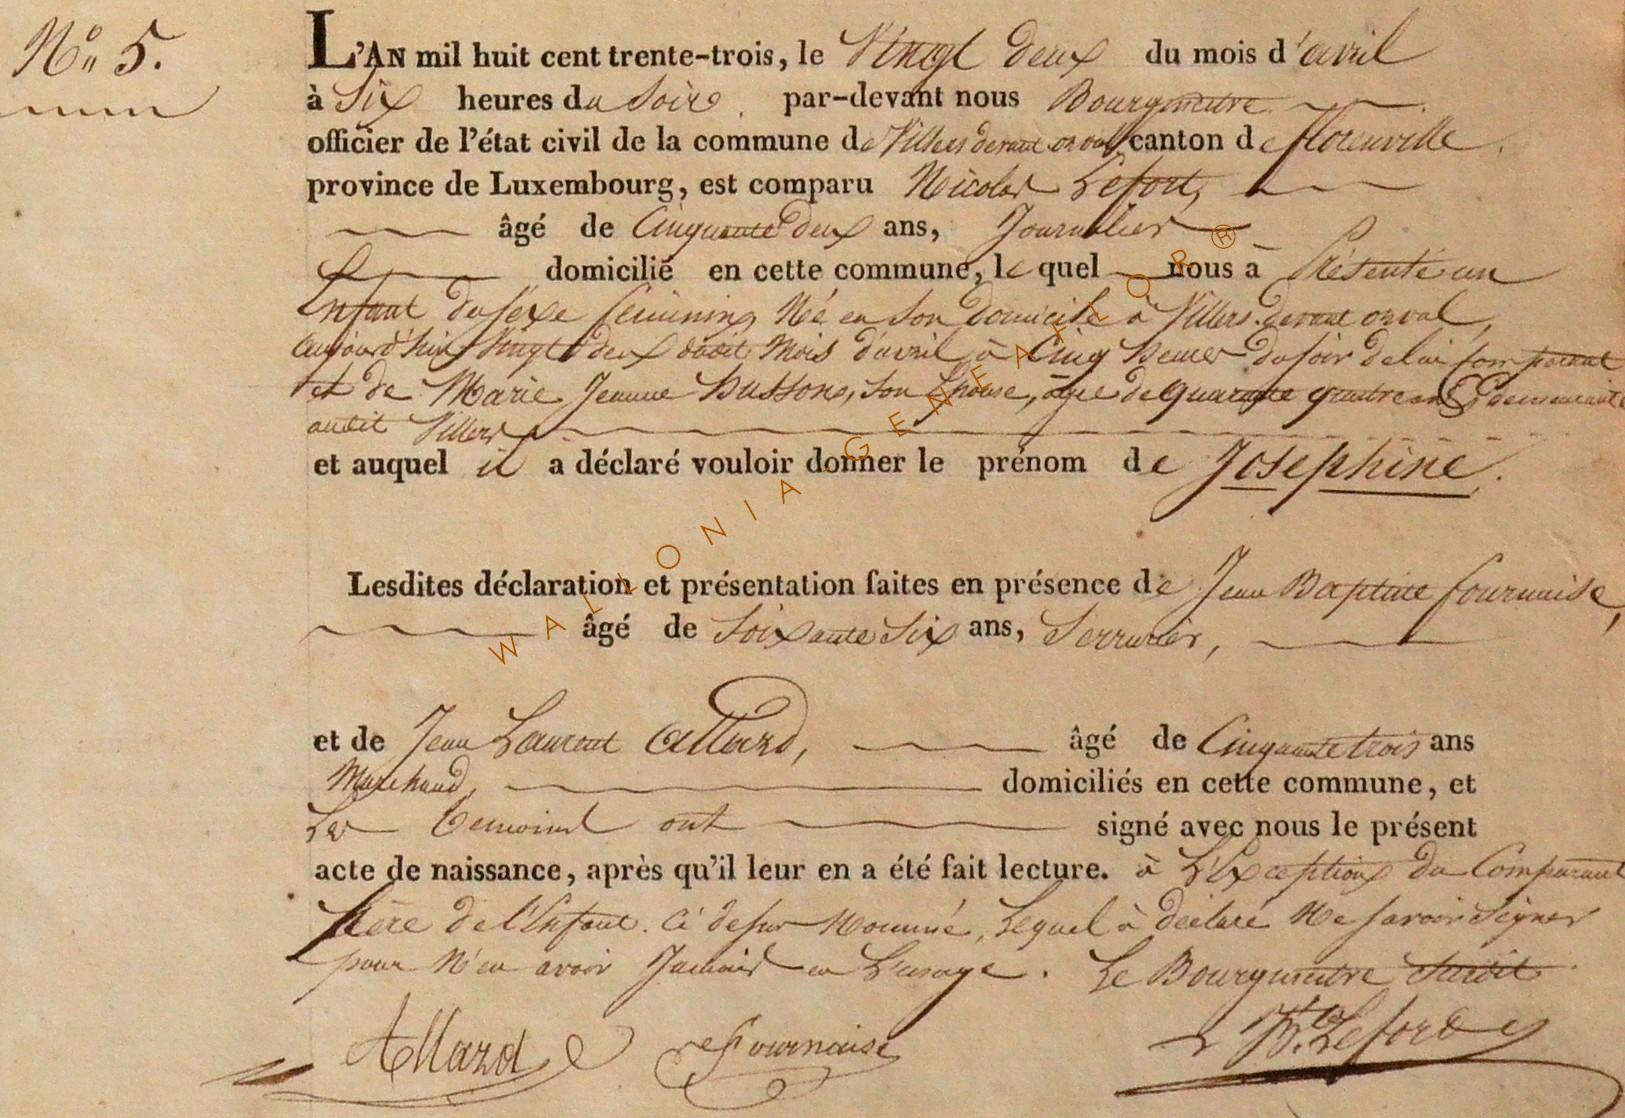 N° 5.
L'AN mil huit cent trente-trois, le Vingt deux du mois d'avril
à Six heures du Soir, par-devant nous Bourgmetre
officier de l'état civil de la commune de Villers devant orval canton de florenville,
province de Luxembourg, est comparu Nicolas Lefort,
âgé de Cinquante deux ans, Journalier
domicilié en cette commune, le quel nous a Présenté un
Enfant du sexe feminin, Né en son Domicile à Villers devant orval,
aujourd'hui Vingt deux dudit Mois d'avril à Cinq heures du soir de lui comparant
et de Marie Jeanne Hussons, Son Epouse, agée de quarante quatre ans & demeurante
audit Villers
et auquel il a déclaré vouloir donner le prénom de Josephine.
Lesdites déclaration et présentation faites en présence de Jean Baptiste fournaise,
âgé de Soixante Six ans, Serrurier,
et de Jean Laurent Allard, âgé de Cinquante trois ans
Marchand, domiciliés en cette commune, et
Les temoins ont signé avec nous le présent
acte de naissance, après qu'il leur en a été fait lecture. à L'Exception du Comparant
père de l'Enfant. Ci dessur Nommé, Lequel à déclaré Ne savoir Signer
pour N'en avoir Jamais eu L'usage. Le Bourgmetre
Allard fournaise Lefort
WALLONIA-GENEAFLOR®